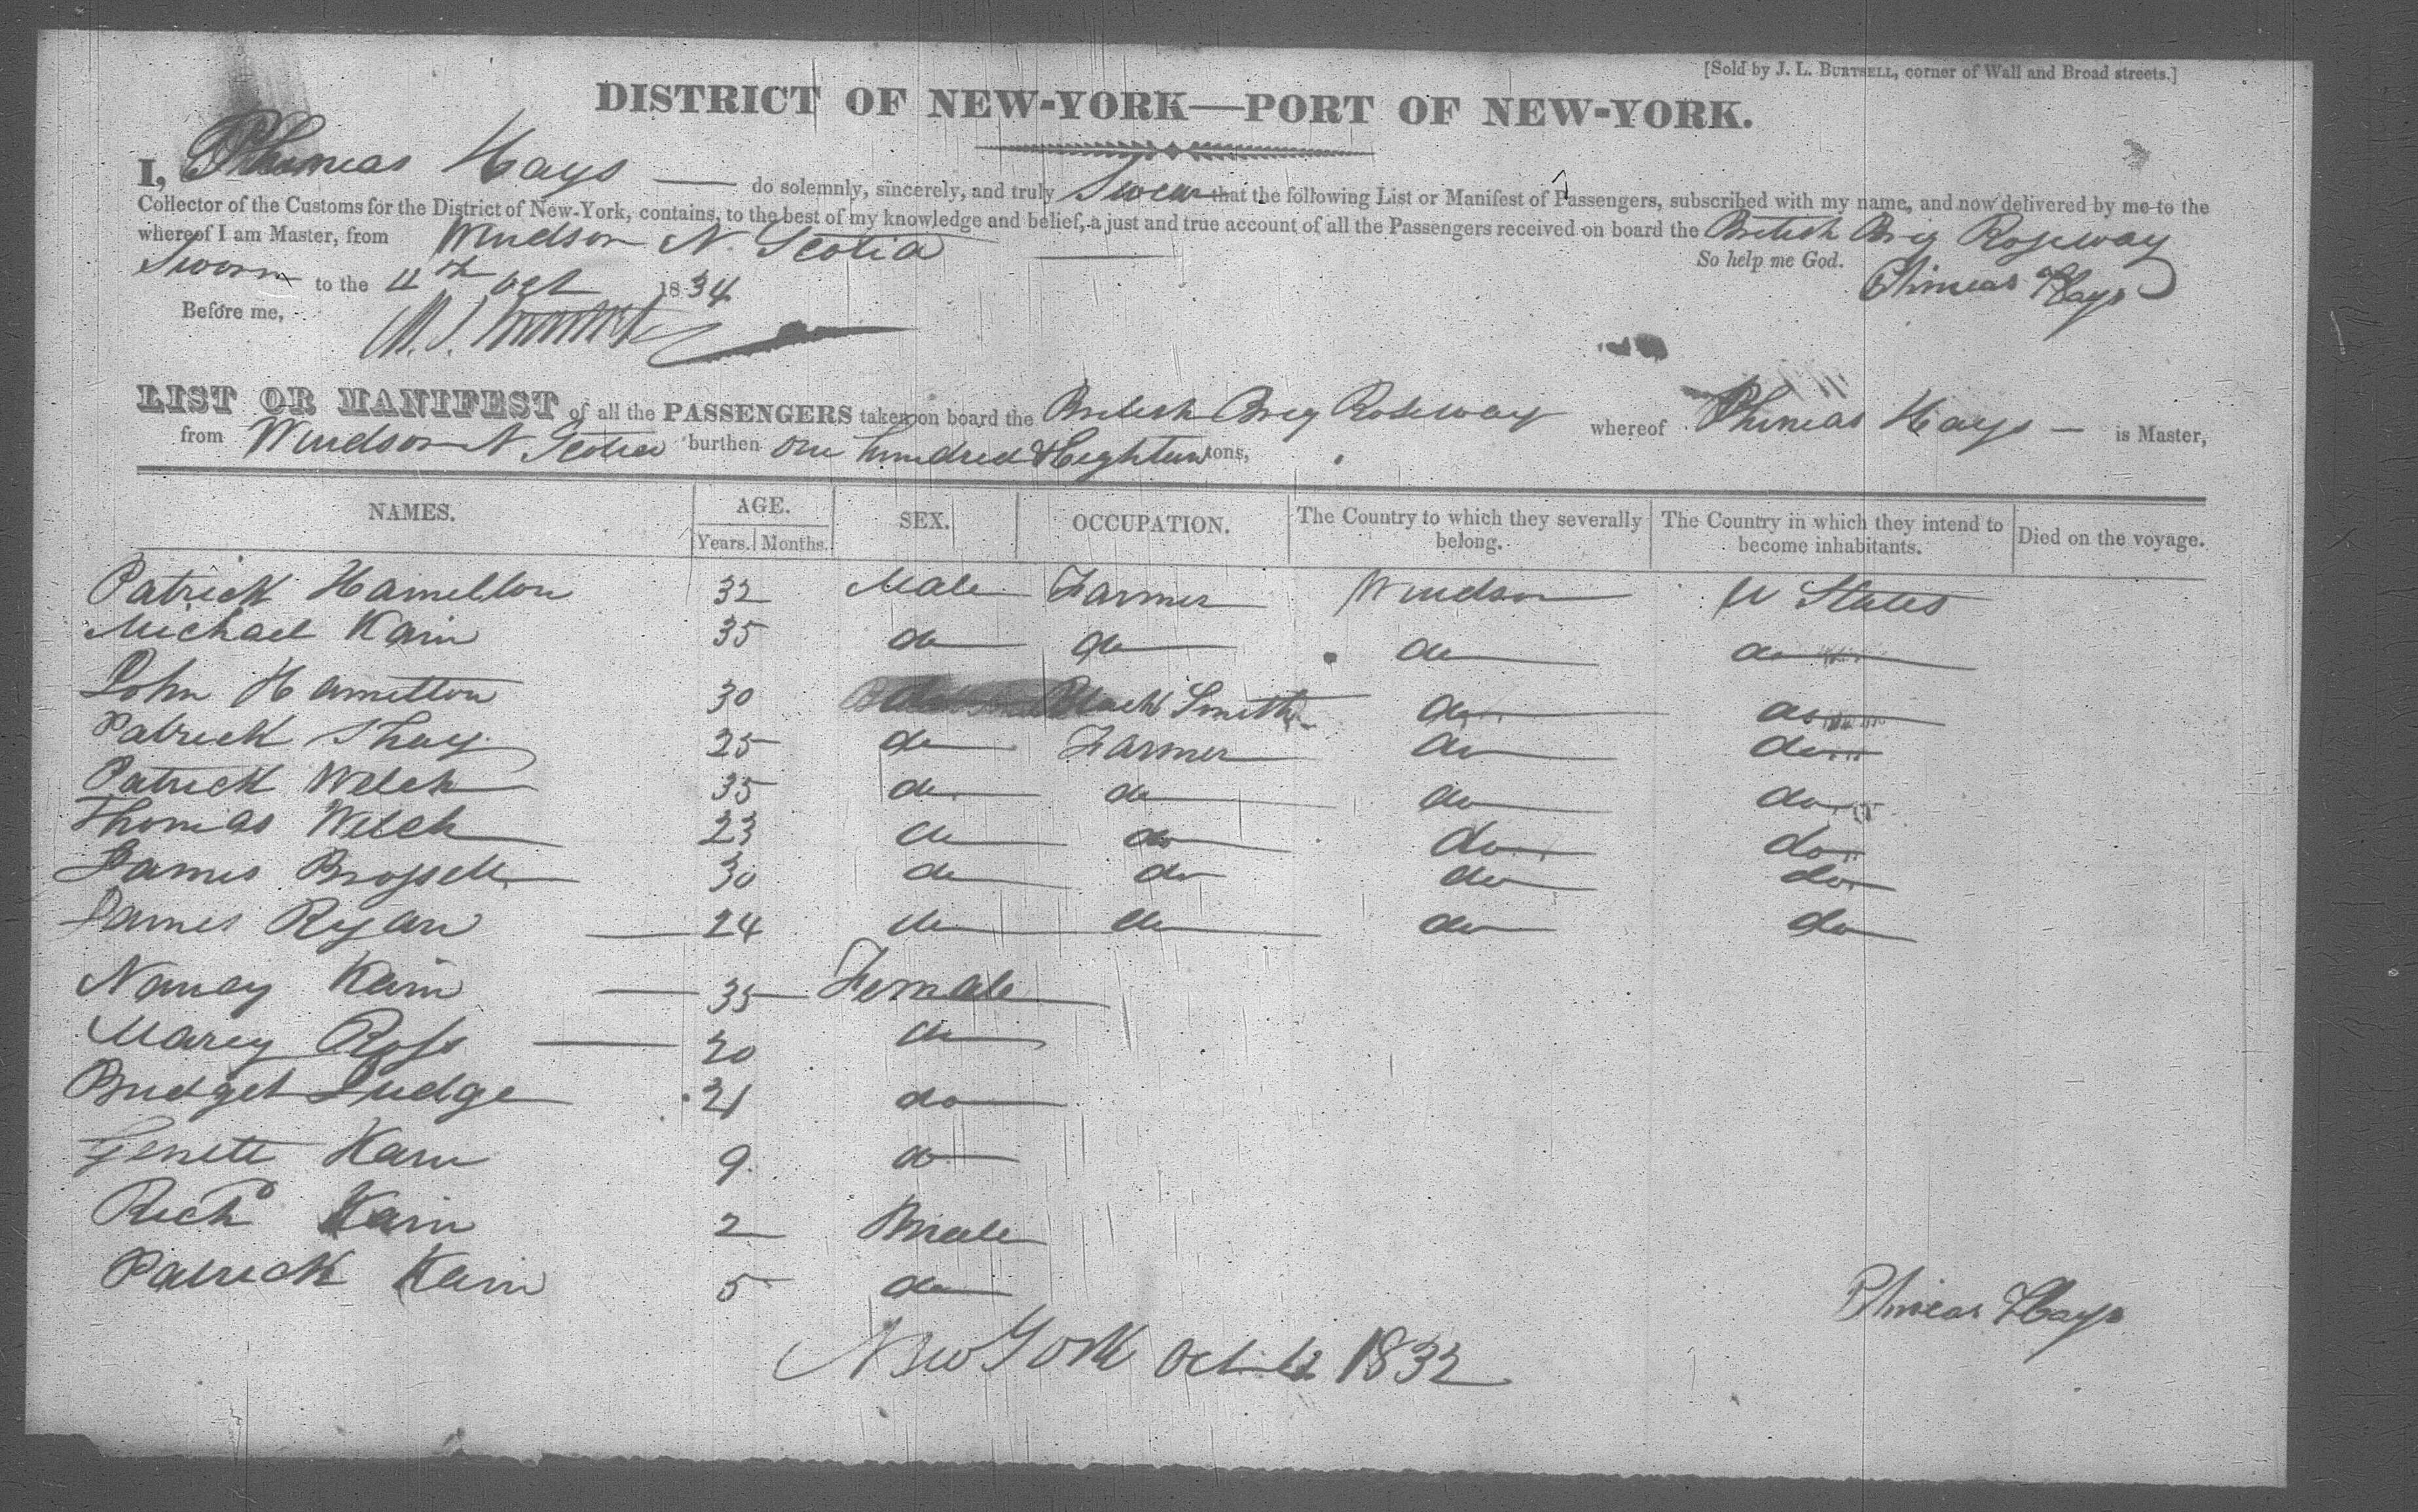 [Sold by J. L. BURTSELL, corner of Wall and Broad streets.]
DISTRICT OF NEW-YORK—PORT OF NEW-YORK.
I, Phineas Hays — do solemnly, sincerely, and truly Swear that the following List or Manifest of Passengers, subscribed with my name, and now delivered by me to the
Collector of the Customs for the District of New-York, contains, to the best of my knowledge and belief, a just and true account of all the Passengers received on board the British Brig Roseway
whereof I am Master, from Windsor N. Scotia
So help me God.
Sworn to the 11th Oct 1834
Phineas Hays
Before me,
LIST OR MANIFEST of all the PASSENGERS taken on board the British Brig Roseway whereof Phineas Hays — is Master,
from Windsor N Scotia burthen One hundred & Eighteen tons,
NAMES. AGE. SEX. OCCUPATION. The Country to which they severally belong. The Country in which they intend to become inhabitants. Died on the voyage.
Years. Months.
Patrick Hamilton 32 Male Farmer Windsor U States
Michael Kain 35 do do do do
John Hamilton 30 do Black Smith do do
Patrick Shay 25 do Farmer do do
Patrick Welch 35 do do do do
Thomas Welch 23 do do do do
James 30 do do do do
James Ryan 24 do do do do
Nancy Kain 35 Female
Marey Ross 20 do
Bridget Judge 21 do
Genett Kain 9 do
Richd Kain 2 Male
Patrick Kain 5 do
Phineas Hays
New York Oct 1832